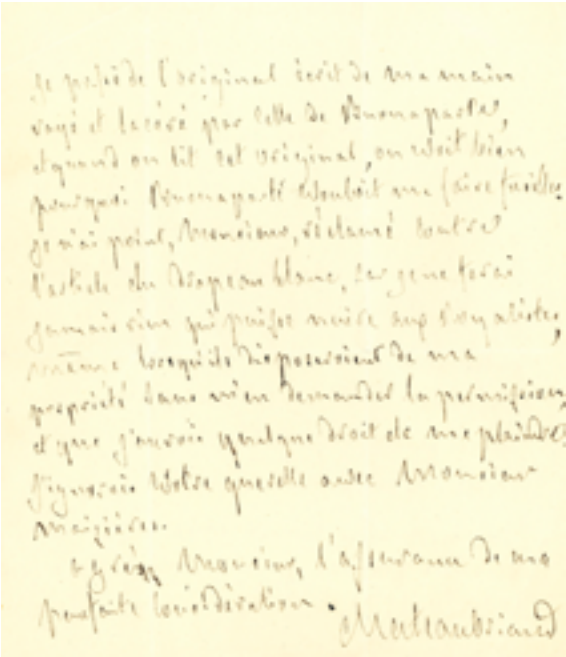 je possède l'original écrit de ma main
rayé et lacéré par celle de Buonaparte,
et quand on lit cet original, on voit bien
pourquoi Buonaparte vouloit me faire fusiller.
je n'ai point, Monsieur, réclamé contre
l'article du Drapeau blanc, car je ne ferai
jamais rien qui puisse nuire aux royalistes,
même lorsqu'ils disposeroient de ma
propriété sans m'en demander la permission,
et que j'aurois quelque droit de me plaindre.
J'ignorois votre querelle avec Monsieur
Maizières.
agréez, Monsieur, l'assurance de ma
parfaite considération.
Chateaubriand